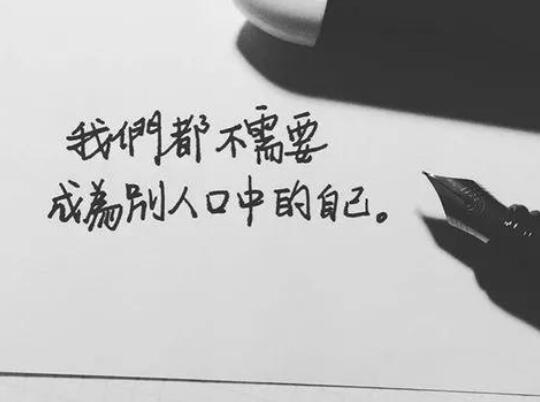 我們都不需要
成為別人口中的自己。